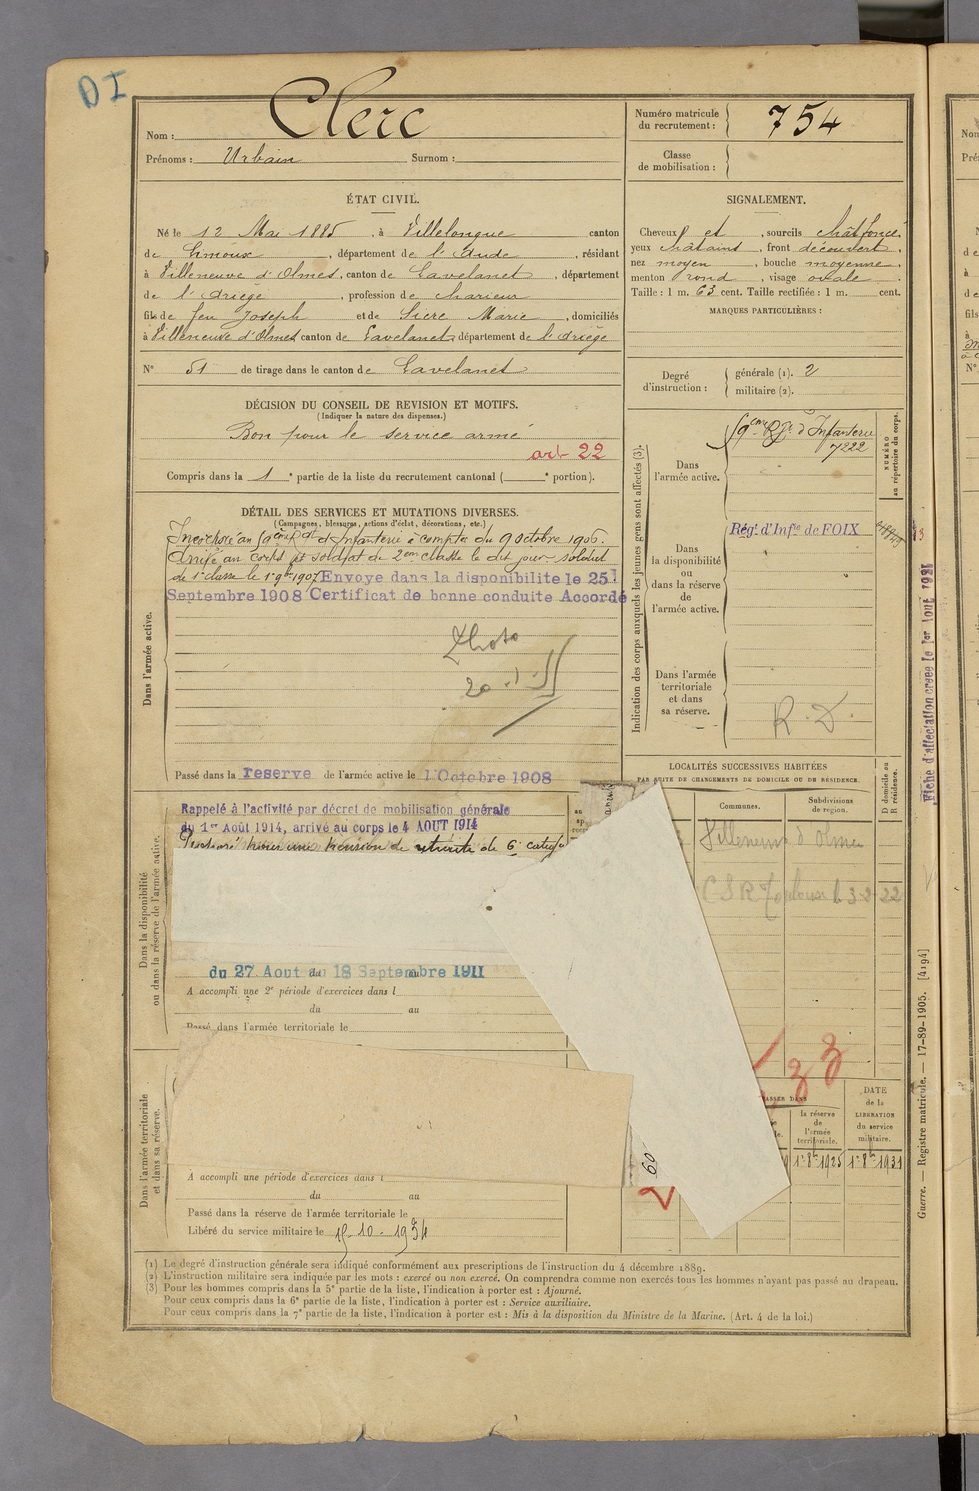 DI
Nom : Clerc
Prénoms : Urbain Surnom :
Numéro matricule du recrutement : 754
Classe de mobilisation :
ÉTAT CIVIL.
Né le 12 Mai 1885, à Villelongue canton
de Limoux, département de l'Aude, résidant
à Villeneuve d'Olmes, canton de Lavelanet, département
de l'Ariège, profession de
fils de feu Joseph et de Sicre Marie, domiciliés
à Villeneuve d'Olmes canton de Lavelanet département de l'Ariège
N° 51 de tirage dans le canton de Lavelanet
SIGNALEMENT.
Cheveux et, sourcils chât foncé,
yeux châtains, front découvert,
nez moyen, bouche moyenne,
menton rond, visage ovale.
Taille : 1 m. 63 cent. Taille rectifiée : 1 m. cent.
MARQUES PARTICULIÈRES :
Degré d'instruction :
générale (1). 2
militaire (2).
DÉCISION DU CONSEIL DE REVISION ET MOTIFS.
(Indiquer la nature des dispenses.)
Bon pour le service armé
art 22
Compris dans la 1e partie de la liste du recrutement cantonal ( e portion).
DÉTAIL DES SERVICES ET MUTATIONS DIVERSES.
(Campagnes, blessures, actions d'éclat, décorations, etc.)
Dans l'armée active.
Incorporé au d'Infanterie à compter du 9 octobre 1906.
Arrivé au corps et soldat de 2ème classe le dit jour. Soldat
de 1e classe le 1er 9bre 1907 Envoye dans la disponibilite le 25
Septembre 1908 Certificat de bonne conduite Accordé
Photo
20
Passé dans la reserve de l'armée active le 1 Octobre 1908
Indication des corps auxquels les jeunes gens sont affectés (3).
NUMÉRO au répertoire du corps.
Dans l'armée active.
d'Infanterie
7222
Dans la disponibilité ou dans la réserve de l'armée active.
Régt d'Infie de FOIX
Dans l'armée territoriale et dans sa réserve.
R. D.
Fiche d'affectation créée le 1er Août 1921
LOCALITÉS SUCCESSIVES HABITÉES
PAR SUITE DE CHANGEMENTS DE DOMICILE OU DE RÉSIDENCE.
Communes.
Subdivisions de région.
D domicile ou R résidence.
Villeneuve d'Olmes
CSR Toulouse le 3-2-22
Dans la disponibilité ou dans la réserve de l'armée active.
Rappelé à l'activité par décret de mobilisation générale
du 1er Août 1914, arrivé au corps le 4 AOUT 1914
Proposé pour une pension de retraite de 6e catégie
du 27 Aout au 18 Septembre 1911
A accompli une 2e période d'exercices dans l
du au
Passé dans l'armée territoriale le
33
la réserve de l'armée territoriale.
DATE de la LIBÉRATION du service militaire.
1er 8bre 1925
1er 8bre 1931
60
Dans l'armée territoriale et dans sa réserve.
A accompli une période d'exercices dans l
du au
Passé dans la réserve de l'armée territoriale le
Libéré du service militaire le 15-10-1934
(1) Le degré d'instruction générale sera indiqué conformément aux prescriptions de l'instruction du 4 décembre 1889.
(2) L'instruction militaire sera indiquée par les mots : exercé ou non exercé. On comprendra comme non exercés tous les hommes n'ayant pas passé au drapeau.
(3) Pour les hommes compris dans la 5e partie de la liste, l'indication à porter est : Ajourné.
Pour ceux compris dans la 6e partie de la liste, l'indication à porter est : Service auxiliaire.
Pour ceux compris dans la 7e partie de la liste, l'indication à porter est : Mis à la disposition du Ministre de la Marine. (Art. 4 de la loi.)
Guerre. — Registre matricule. — 17-89-1905. [4194]